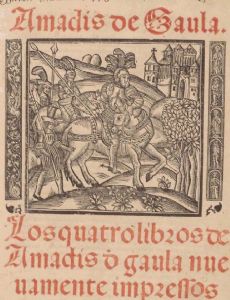 Amadis de Gaula.
Los quatro libros de
Amadis d̄ gaula nue
uamente impressos